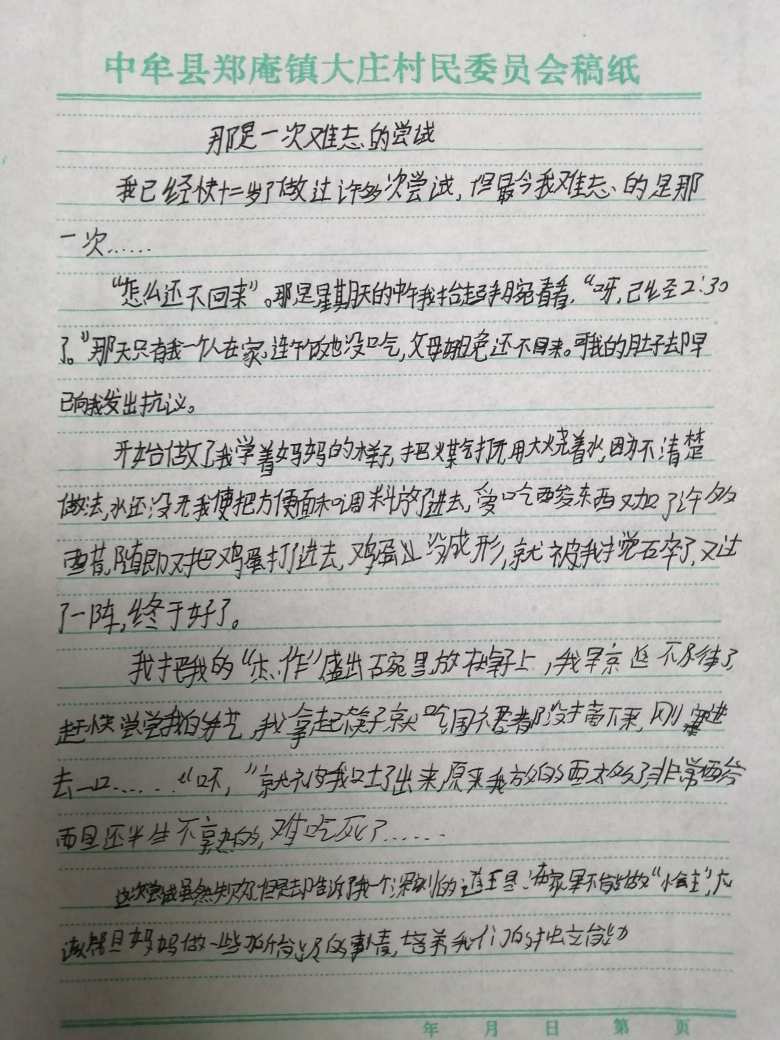 中牟县郑庵镇大庄村民委员会稿纸
那是一次难忘的尝试
我已经快十二岁了做过许多次尝试，但最令我难忘的是那
一次……
“怎么还不回来”。那是星期天的中午我抬起手腕看看，“呀，已经2:30
了。”那天只有我一个人在家，连午饭也没吃，父母还不回来。可我的肚子却早
已向我发出抗议。
开始做了我学着妈妈的样子，把煤气打开用大火烧着水，因为不清楚
做法，水还没开我便把方便面和调料放了进去，爱吃西多东西又加了许多
西，随即又把鸡蛋打了进去，鸡蛋还没成形，就被我搅碎了，又过
了一阵，终于好了。
我把我的“杰作”盛出在碗里放在桌子上，我早已迫不及待了，
赶快尝尝我的手艺，我拿起筷子就吃，都没来，刚塞进
去一口……“呸，”就被我吐了出来原来我放的西太多了，非常西
而且还半生不熟的，难吃死了……
这次尝试虽然失败了，但是却告诉了我一个深刻的道理：在家里不能做“小公主”，应
该帮妈妈做一些力所能及的事情，培养我们的独立能力
年 月 日 第 页